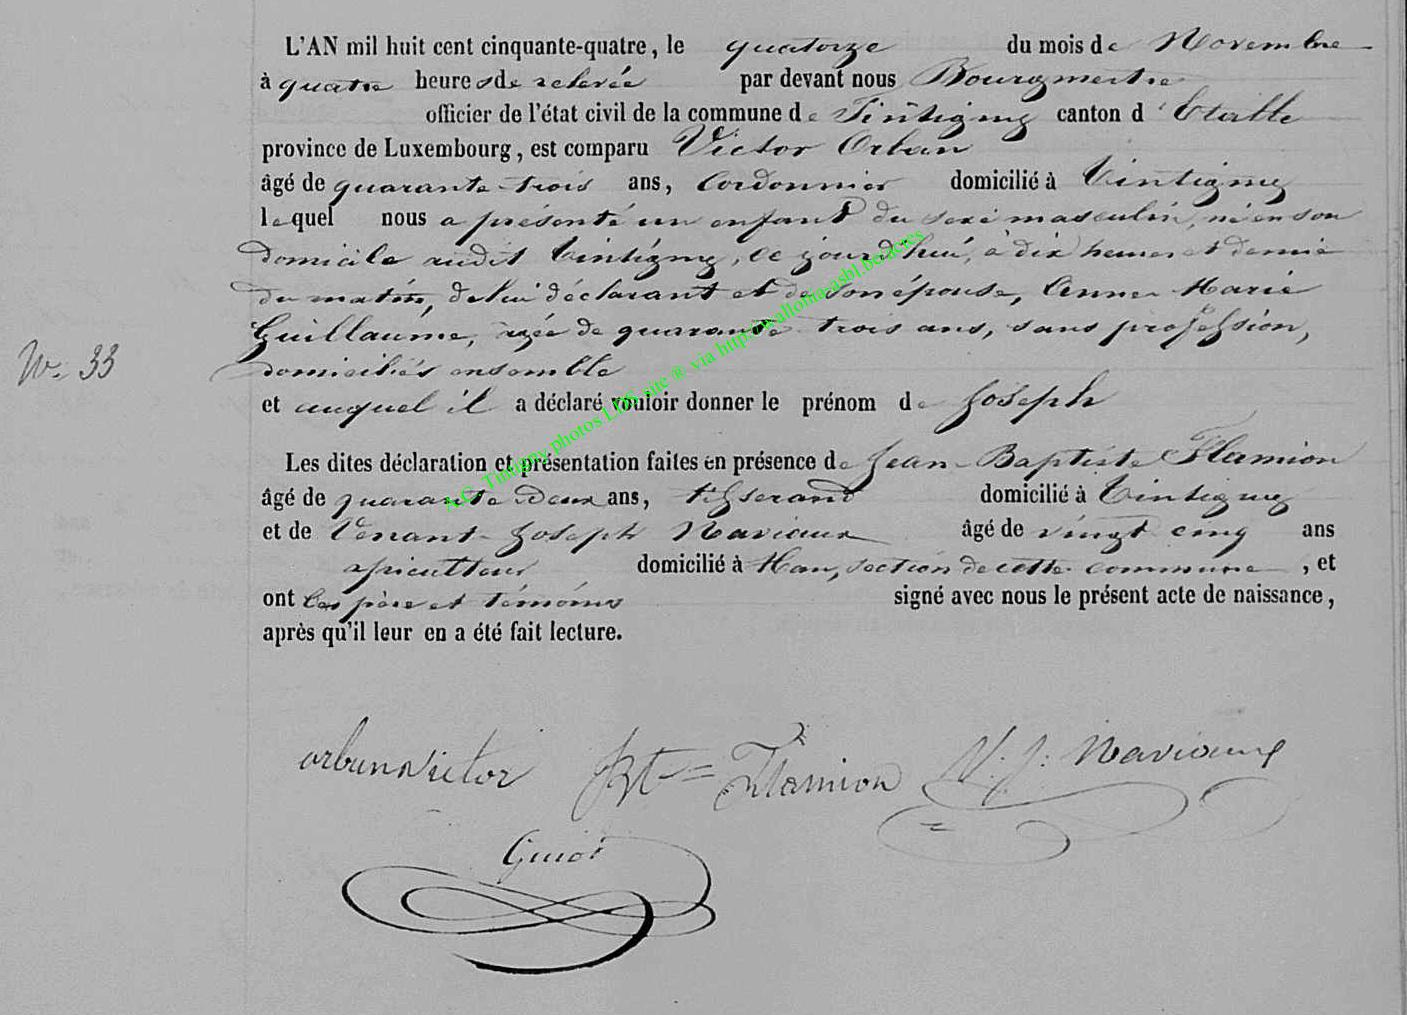 L'AN mil huit cent cinquante-quatre, le quatorze du mois de Novembre
à quatre heures de relevée par devant nous Bourgmestre
officier de l'état civil de la commune de Tintigny canton d'Etalle
province de Luxembourg, est comparu Victor Orban
âgé de quarante-trois ans, Cordonnier domicilié à Tintigny
lequel nous a présenté un enfant du sexe masculin, né en son
domicile audit Tintigny, ce jourd'hui, à dix heures et demie
du matin, de lui déclarant et de son épouse, Anne Marie
Guillaume, agée de quarante trois ans, sans profession,
domiciliés ensemble
N. 33
et auquel il a déclaré vouloir donner le prénom de Joseph
Les dites déclaration et présentation faites en présence de Jean-Baptiste Flamion
âgé de quarante deux ans, tisserand domicilié à Tintigny
et de Venant-Joseph Naviaux âgé de vingt cinq ans
apiculteur domicilié à Han, section de cette commune, et
ont les père et témoins signé avec nous le présent acte de naissance,
après qu'il leur en a été fait lecture.
orban victor Bt= Flamion V. J. Naviaux
Guiot
A.G. Tintigny photos LDS site ® via http://wallonia-asbl.be/actes